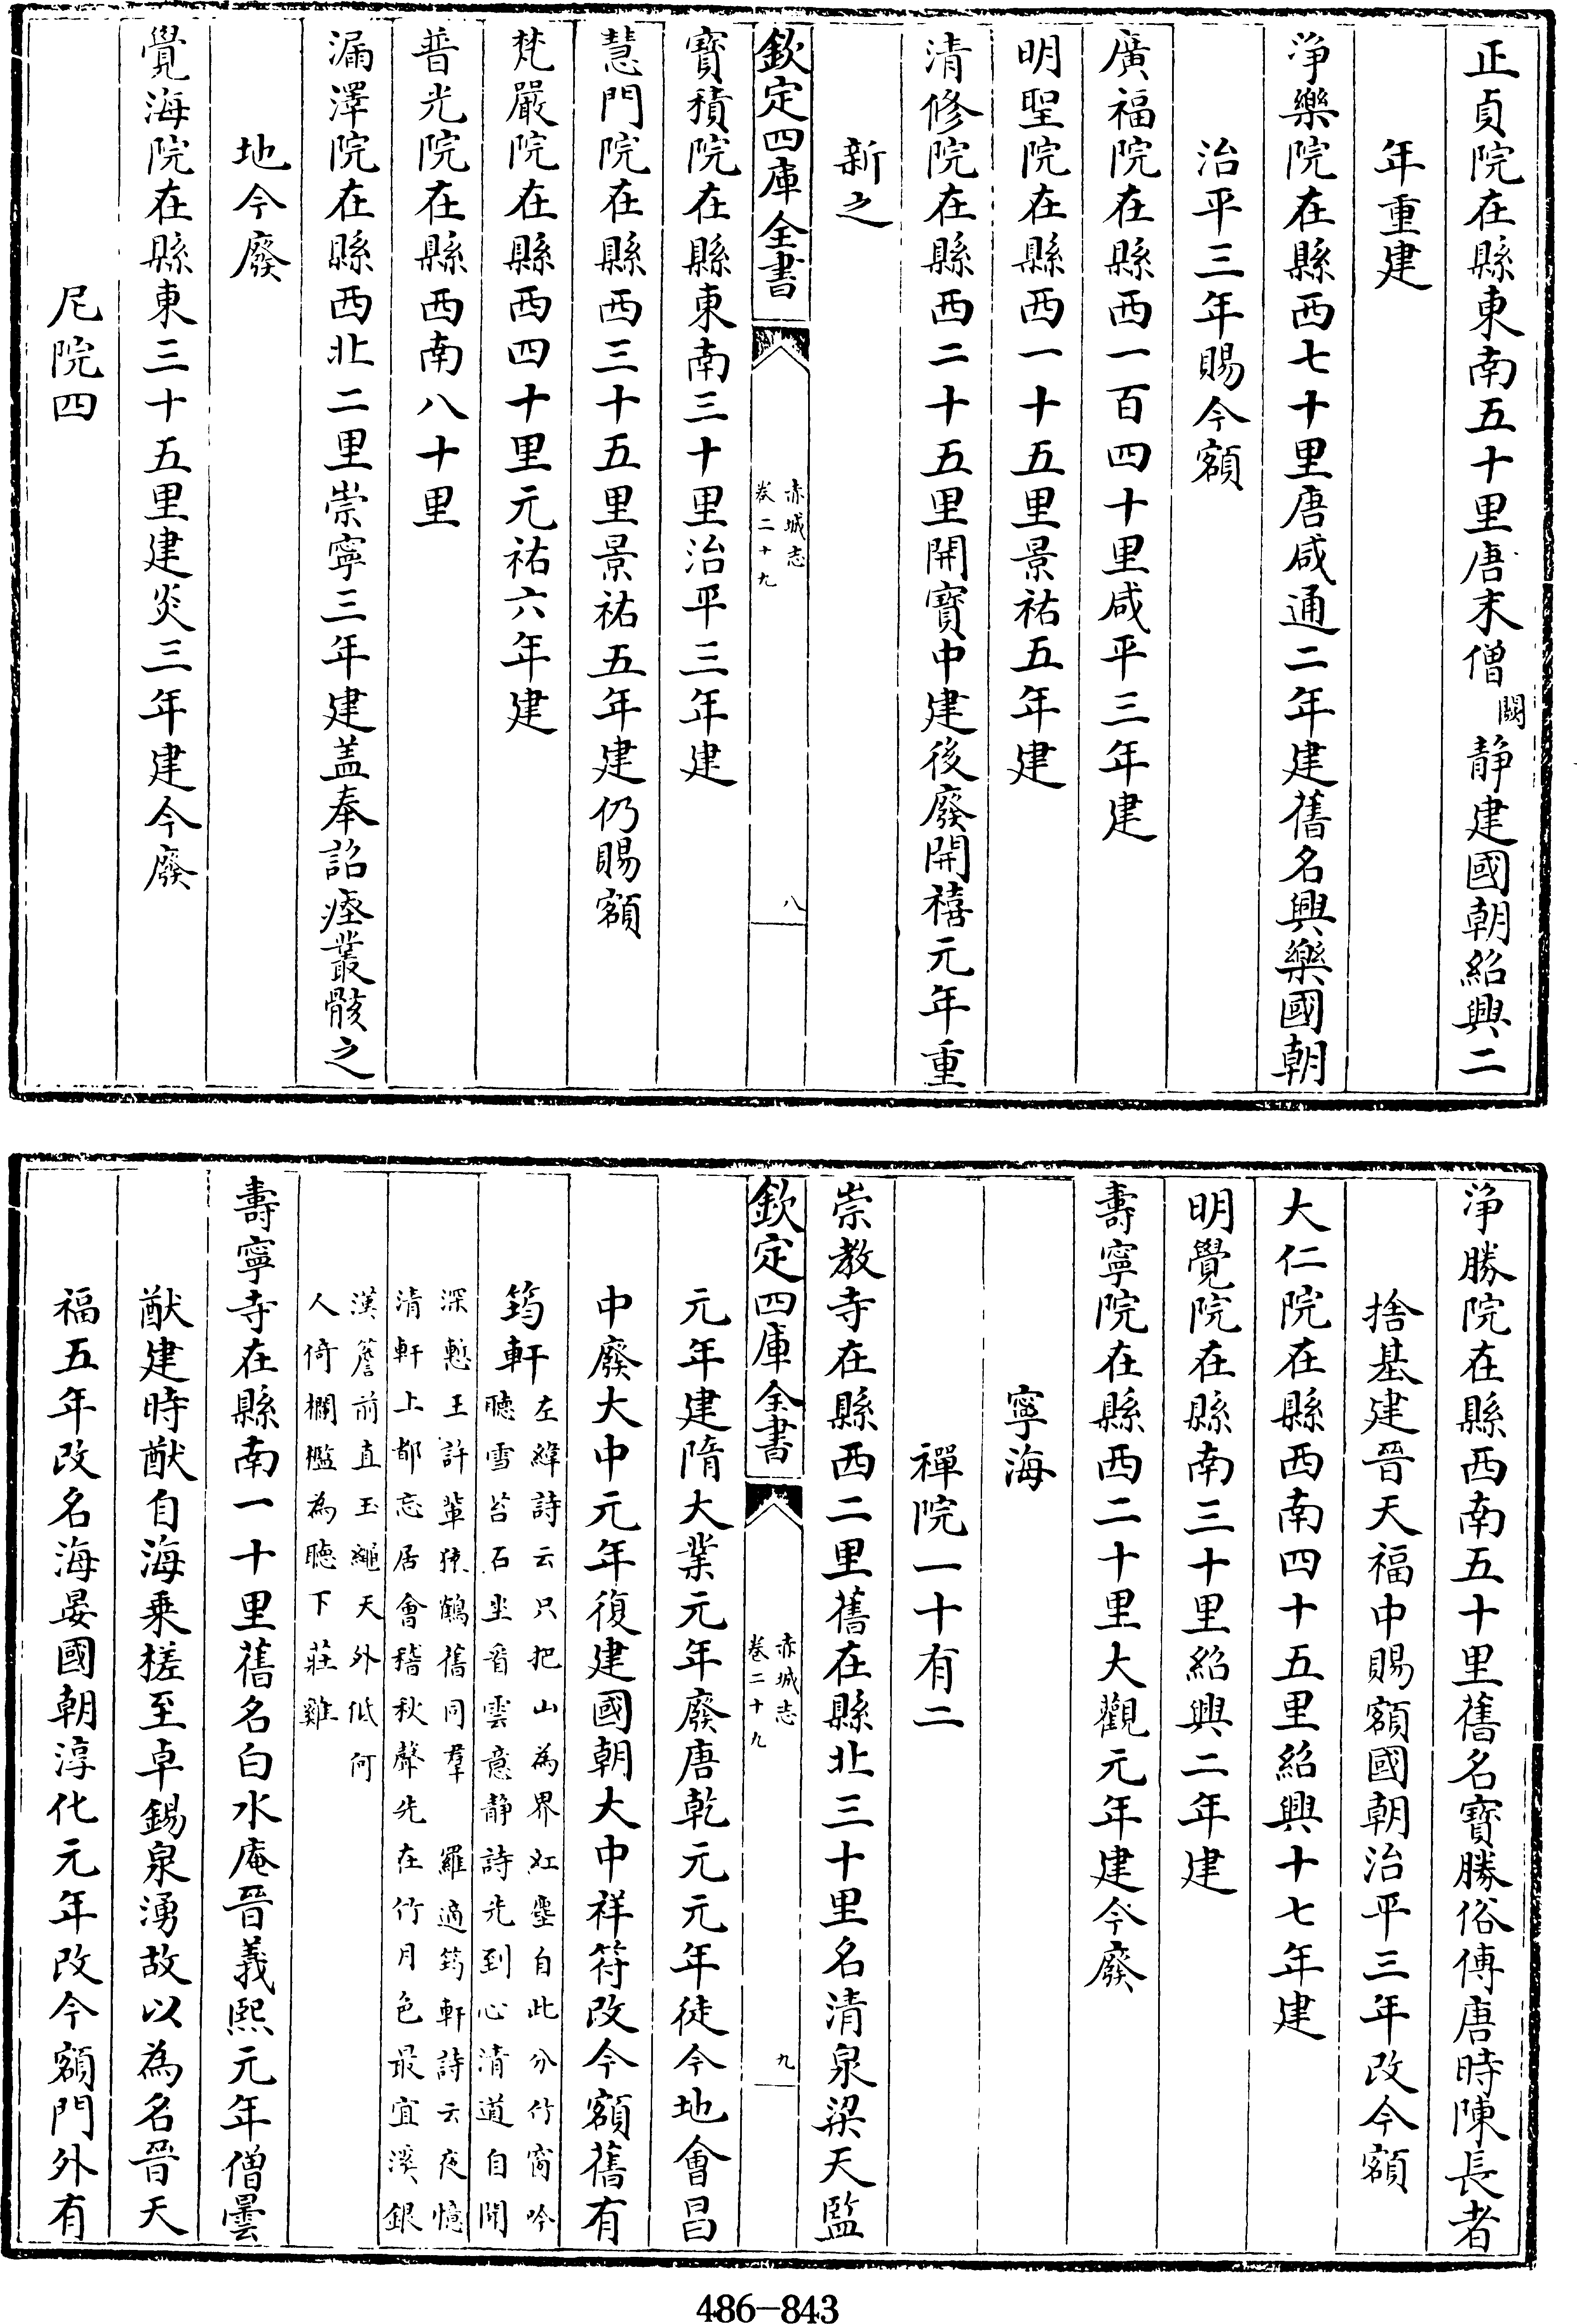 正貞院在縣東南五十里唐末僧闕静建國朝紹興二
年重建
淨樂院在縣西七十里唐咸通二年建舊名興樂國朝
治平三年賜今額
廣福院在縣西一百四十里咸平三年建
明聖院在縣西一十五里景祐五年建
清修院在縣西二十五里開寶中建後廢開禧元年重
新之
欽定四庫全書
赤城志
卷二十九
八
寶積院在縣東南三十里治平三年建
慧門院在縣西三十五里景祐五年建仍賜額
梵嚴院在縣西四十里元祐六年建
普光院在縣西南八十里
漏澤院在縣西北二里崇寧三年建盖奉詔瘞叢骸之
地今廢
覺海院在縣東三十五里建炎三年建今廢
尼院四
淨勝院在縣西南五十里舊名寶勝俗傳唐時陳長者
捨基建晉天福中賜額國朝治平三年改今額
大仁院在縣西南四十五里紹興十七年建
明覺院在縣南三十里紹興二年建
壽寧院在縣西二十里大觀元年建今廢
寧海
禪院一十有二
崇教寺在縣西二里舊在縣北三十里名清泉梁天監
欽定四庫全書
赤城志
卷二十九
九
元年建隋大業元年廢唐乾元元年徙今地會昌
中廢大中元年復建國朝大中祥符改今額舊有
筠軒
左緯詩云只把山為界紅塵自此分竹窗吟
聽雪苔石坐看雲意静詩先到心清道自聞
深慙王許輩猿鶴舊同羣 羅適筠軒詩云夜憶
清軒上都忘居會稽秋聲先在竹月色最宜溪銀
漢簷前直玉繩天外低何
人倚欄檻為聽下莊雞
壽寧寺在縣南一十里舊名白水庵晉義熙元年僧曇
猷建時猷自海乗槎至卓錫泉湧故以為名晉天
福五年改名海晏國朝淳化元年改今額門外有
486-843